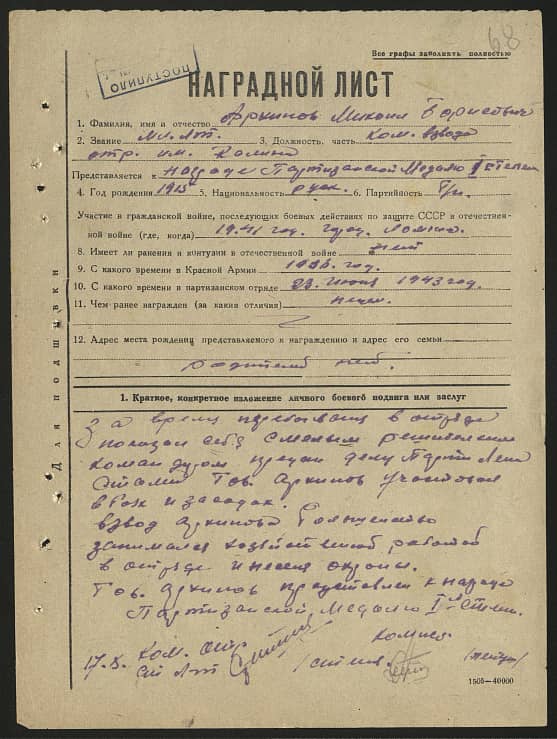 68
Все графы заполнить полностью
ПОСТУПИЛО
НАГРАДНОЙ ЛИСТ
1. Фамилия, имя и отчество Архипов Михаил Борисович
2. Звание Мл. Лт. 3. Должность, часть Ком. взвода
отр. им. Калинина
Представляется к награде Партизанской Медалью I степени
4. Год рождения 1915 5. Национальность русск. 6. Партийность б/п.
Участие в гражданской войне, последующих боевых действиях по защите СССР в отечествен-
ной войне (где, когда) 1941 год. город.
8. Имеет ли ранения и контузии в отечественной войне нет
9. С какого времени в Красной Армии 1936 год.
10. С какого времени в партизанском отряде 23 июня 1943 год.
11. Чем ранее награжден (за какие отличия)
12. Адрес места рождения представляемого к награждению и адрес его семьи
родителей нет.
Для подшивки
1. Краткое, конкретное изложение личного боевого подвига или заслуг
За время пребывания в отряде
показал себя смелым решительным
командиром предан делу Партии Лени
Сталина Тов. Архипов участвовал
в боях и засадах.
взвод Архипова большинство
занимался хозяйственной работой
в отряде и несения охраны.
Тов. Архипов представлен к награде
Партизанской Медалью I степени.
17.X. Ком. отр.
ст Лт
Комиссар
1505—40000